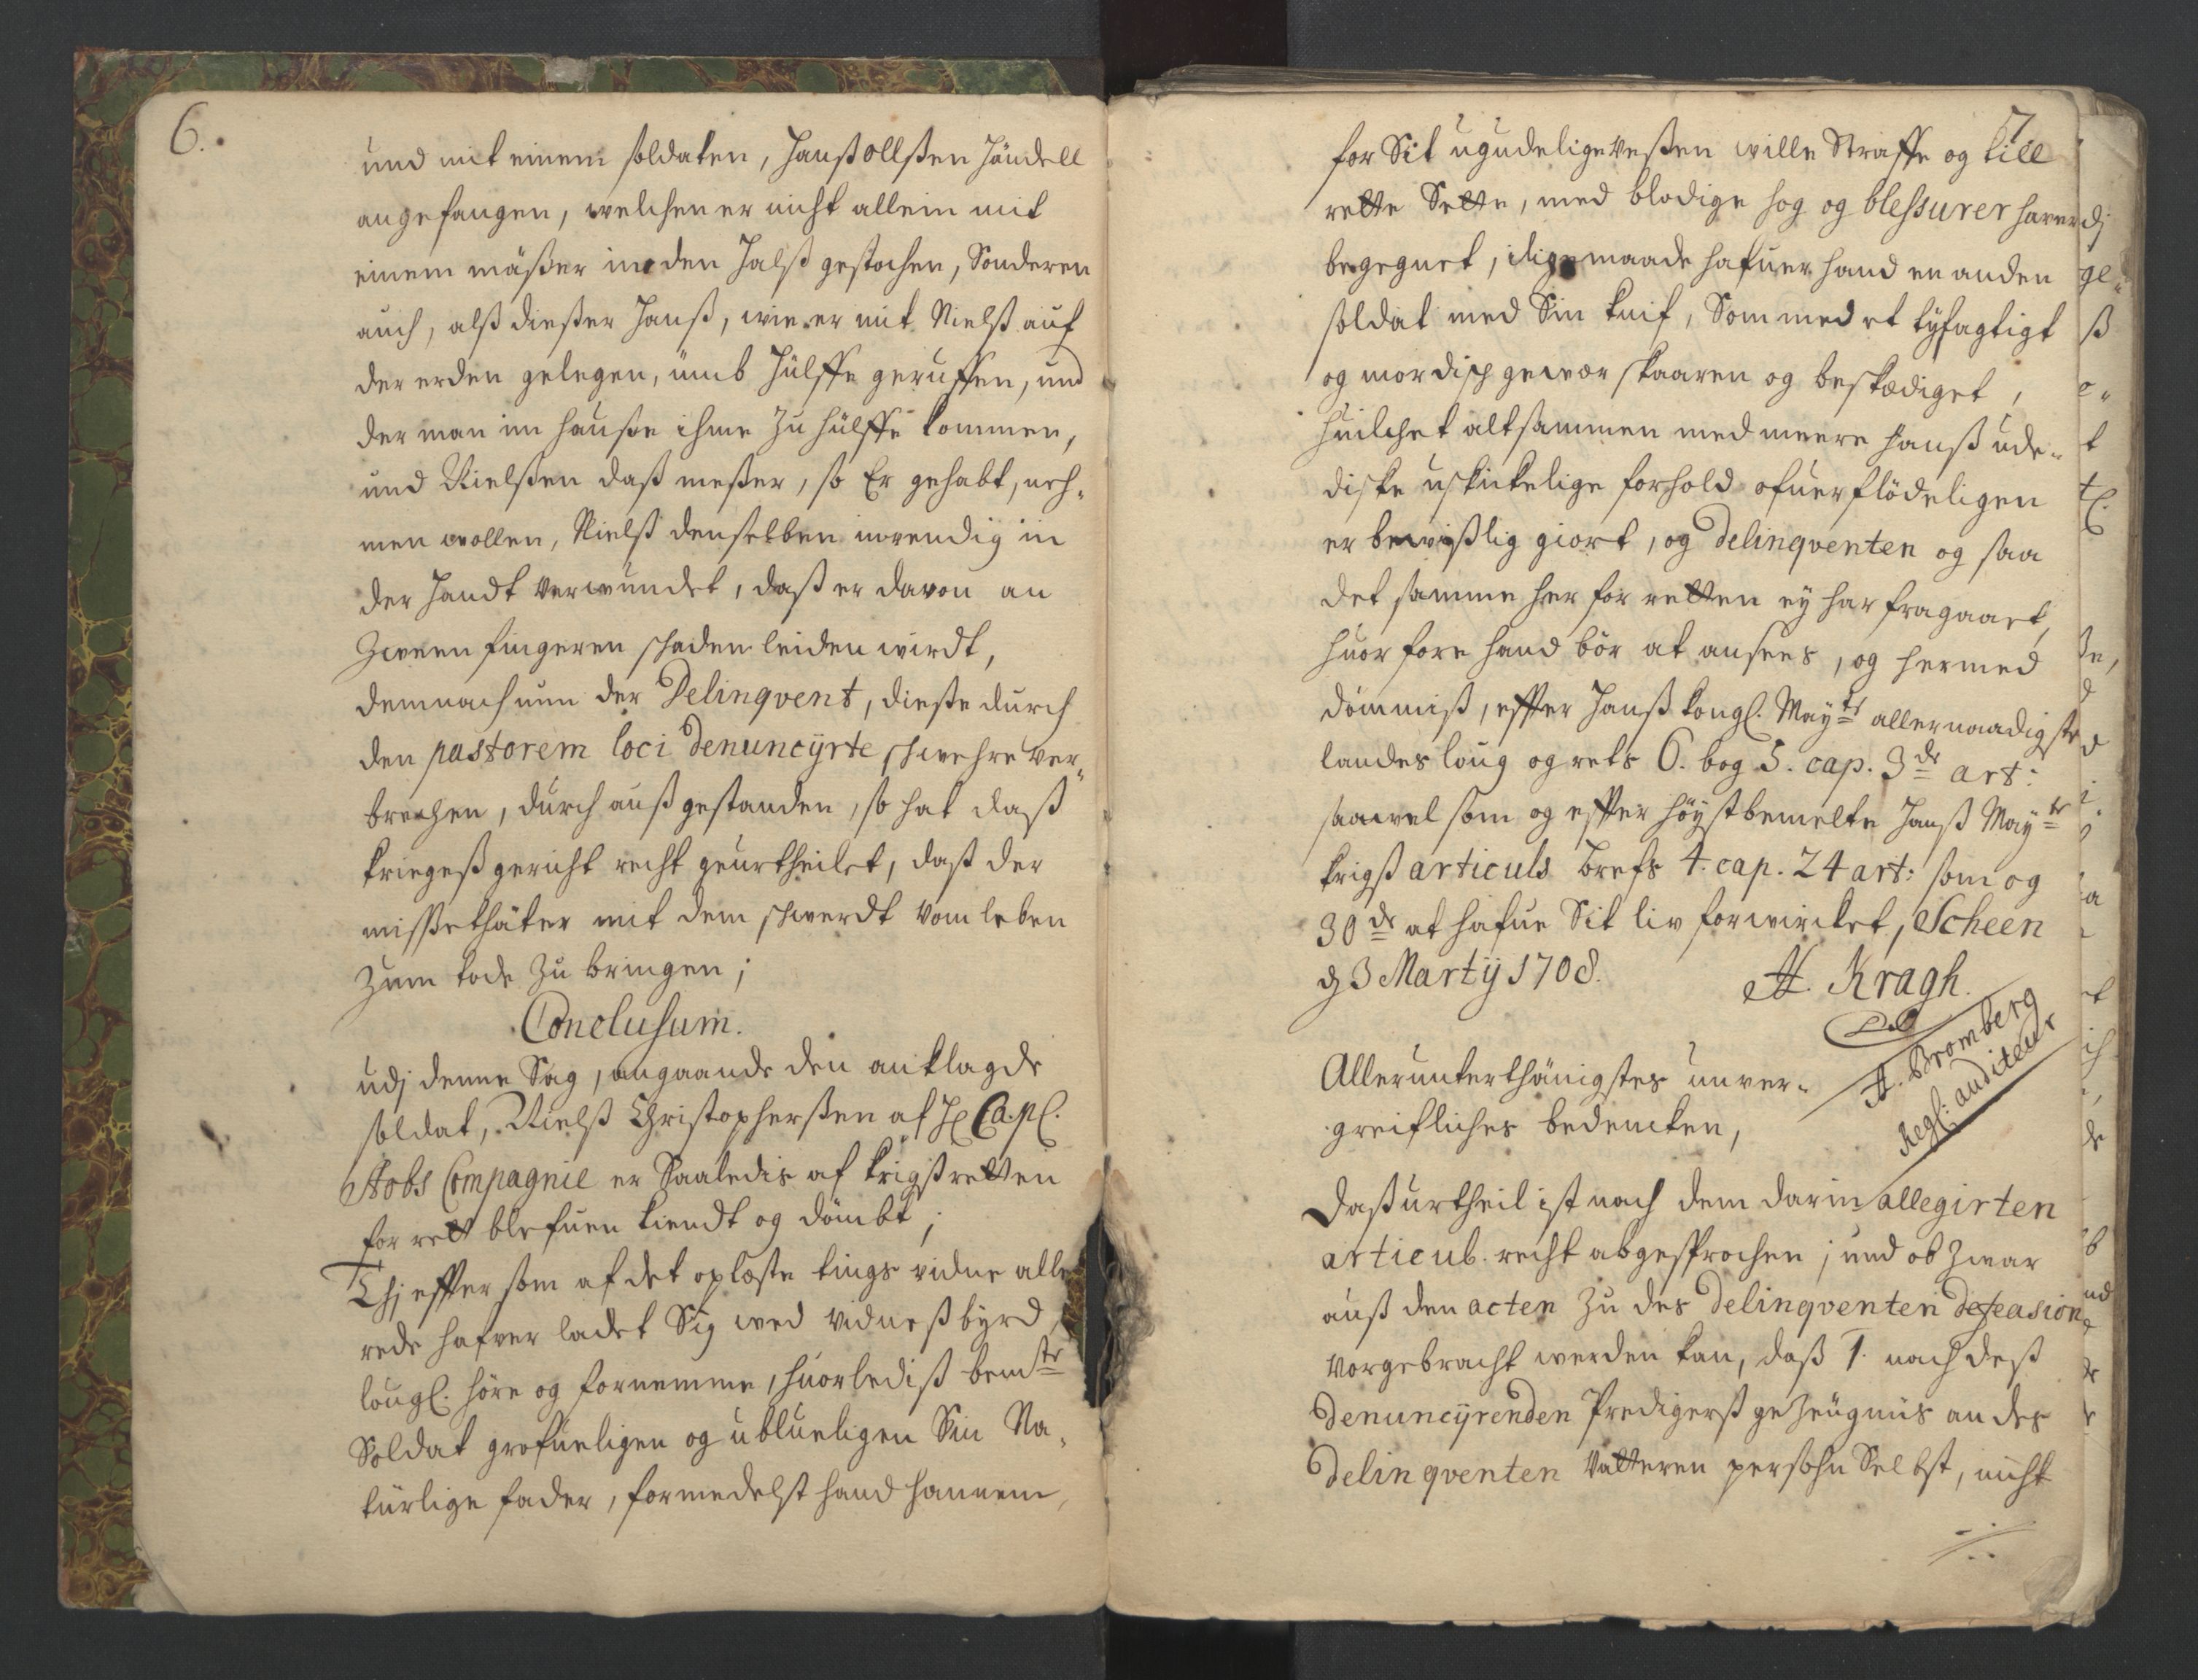 6.
und mit einem soldaten, Hanß Ollßen Händell
angefangen, welchen er nicht allein mit
einem mäßer in den Halß gestochen, Sonderen
auch, alß dießer Hanß, wie er mit Nielß auf
der erden gelegen, umb Hülffe geruffen, und
der man im hauße ihme zu hülffe kommen,
und Nielßen daß meßer, so Er gehabt, neh-
men wollen, Nielß denselben inwendig in
der Handt verwundet, daß er davon an
Zween fingeren schaden leiden wirdt,
demnach nun der Delinqvent, dieße durch
den pastorem loci denuncÿrte schwehre ver-
brechen, durch auß gestanden, so hat daß
kriegeß gericht recht geurtheilet, daß der
mißethäter mit dem schwerdt vom leben
zum tode zu bringen;
Conclusum.
udj denne Sag, angaande den anklagde
soldat, Nielß Christopherßen af H Capl.
Stobs Compagnie er Saaledis af krigßretten
for rett blefuen kiendt og dömbt;
Thj effter som af det oplæste tings vidne alle-
rede hafver ladet Sig wed vidneßbyrd
lougl. höre og fornemme, huorlediß bemte
Soldat grofueligen og ublueligen Sin Na-
turlige fader, formedelst hand hannem
7
for Sit ugudelige veßen wille Straffe og till
rette Sette, med blodige hog og bleßurer haver
begegnet, ligemaade hafuer hand en anden
soldat med Sin knif, Som med et tÿfagtigt
og mordisch gewær skaaren og beskædiget,
huilchet altsammen med meere hanß ude-
diske uskickelige forhold ofuerflödeligen
er bewißlig giort, og Delinqventen og saa
det samme her for retten ej har fragaaet,
huor fore hand bör at ansees, og hermed
dömmiß, effter Hanß kongl. Mayts allernaadigste
landes loug og rets 6. bog 5. cap. 3de art:
saavel som og effter höystbemelte Hanß Mayts
krigß articuls brefs 4. cap. 24 art: som og
30de at hafue Sit liv forwircket, Scheen
d 3 Martÿ 1708.
A. Kragh.
A. Bromberg
Regl: auditeur
Allerunterthänigstes unver-
greifliches bedencken,
Daß urtheil ist nach dem darin allegirten
articul. recht abgesprochen; und ob zwar
auß den acten zu des Delinqventen defension
vorgebracht werden kan, daß 1. nach deß
Denuncÿrenden Predigerß gezeügnis an des
Delinqventen Vatteren persohn Selbst, nicht